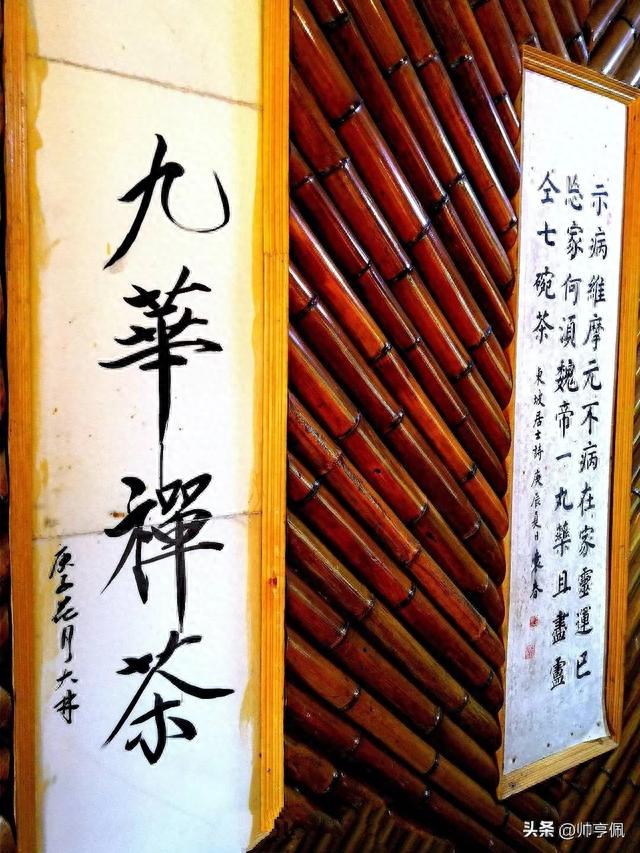 九華禪茶
庚子花月大林
示病維摩元不病在家靈運已
忘家何湏魏帝一丸藥且盡盧
仝七碗茶
東坡居士詩庚辰夏日袁春
头条 @帅亨佩